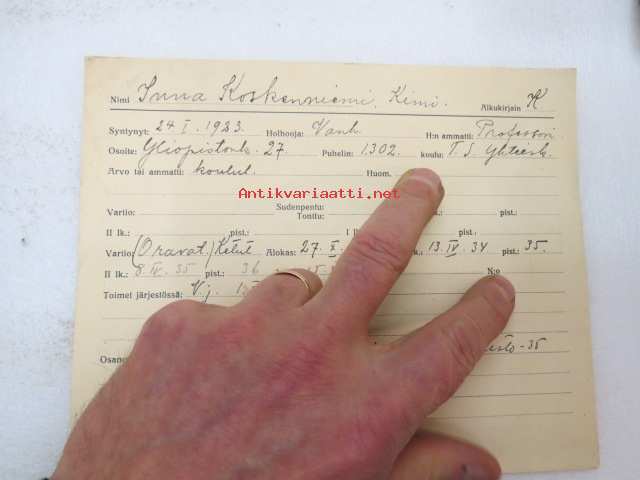 Nimi Inna Koskenniemi, Kimi. Alkukirjain K
Syntynyt: 24 I. 1923. Holhooja: Vanh. H:n ammatti: Professori.
Osoite: Yliopistonk. 27 Puhelin: 1302. koulu: T. S. Yhteisk.
Arvo tai ammatti: koulul. Huom.
Antikvariaatti.net
Sudenpentu:
Vartio: Tonttu: pist.:
II lk.: pist.: I
Vartio: (Oravat.) Ketut Alokas: 27. X k.: 13. IV. 34 pist.: 35.
II lk.: 8 IV. 35 pist.: 36 N:o
Toimet järjestössä: Vj.
Osano -35